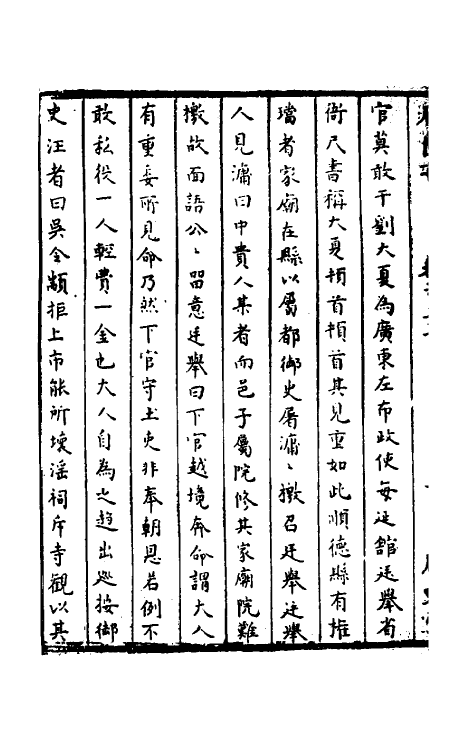 官莫敢干劉大夏為廣東左布政使每廷舘廷舉省
衙尺書稱大夏頓首頓首其見重如此順德縣有㩁
璫者家廟在縣以屬都御史屠滽、檄召廷舉廷舉
人見滽曰中貴人某者而邑子屬院修其家廟院難
檄故面語公、噐意廷舉曰下官越境奔命謂大人
有重委所見命乃然下官守土吏非奉朝恩若例不
敢私役一人輕費一金也大人自為之趋出廵按御
史汪者曰吳令顓拒上市能所壞滛祠斥寺觀以其